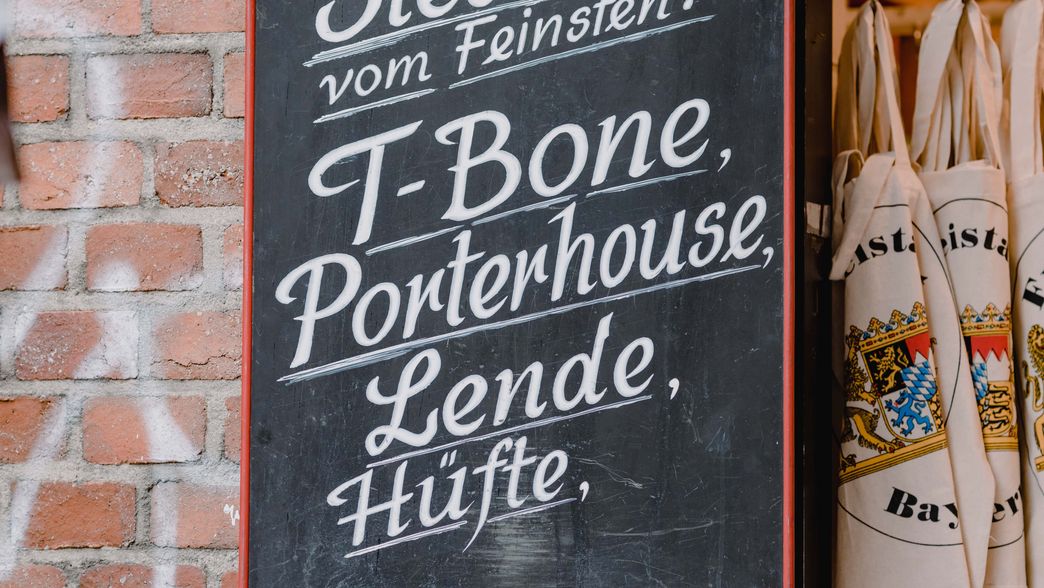 vom Feinsten!
T-Bone,
Porterhouse,
Lende,
Hüfte,
Bayern